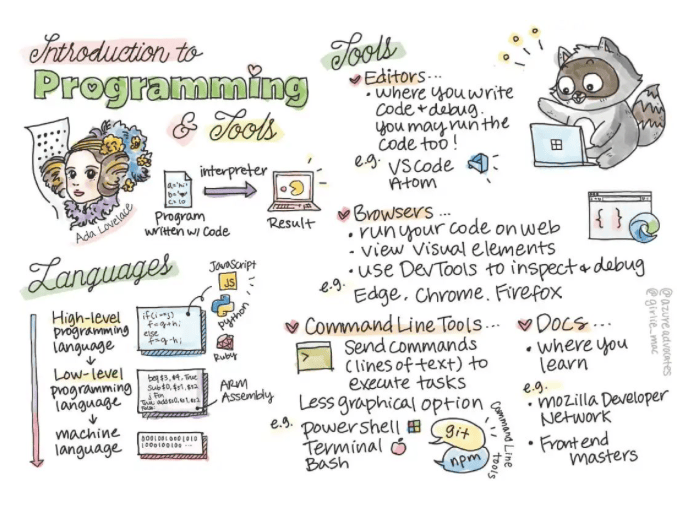 Introduction to
Programming
& Tools
Ada Lovelace
a='hi'
interpreter
Program
written w/ Code
Result
Languages
High-level
programming
language
Low-level
programming
language
machine
language
if(i==j)
f=g+h;
else
f=g-h;
ARM
Assembly
JavaScript
JS
Python
Ruby
Tools
Editors...
• where you write
code + debug.
you may run the
code too!
e.g.
VS Code
Atom
Browsers...
• run your code on web
• view visual elements
• use DevTools to inspect & debug
e.g.
Edge, Chrome, Firefox
{ }
Command Line Tools...
>
Send commands
(lines of text) to
execute tasks
Less graphical option
e.g. powershell
Terminal
Bash
git
npm
Command Line
tools
Docs...
• where you
learn
e.g.
• mozilla Developer
Network
• Frontend
masters
@azureadvocates
@girlie_mac